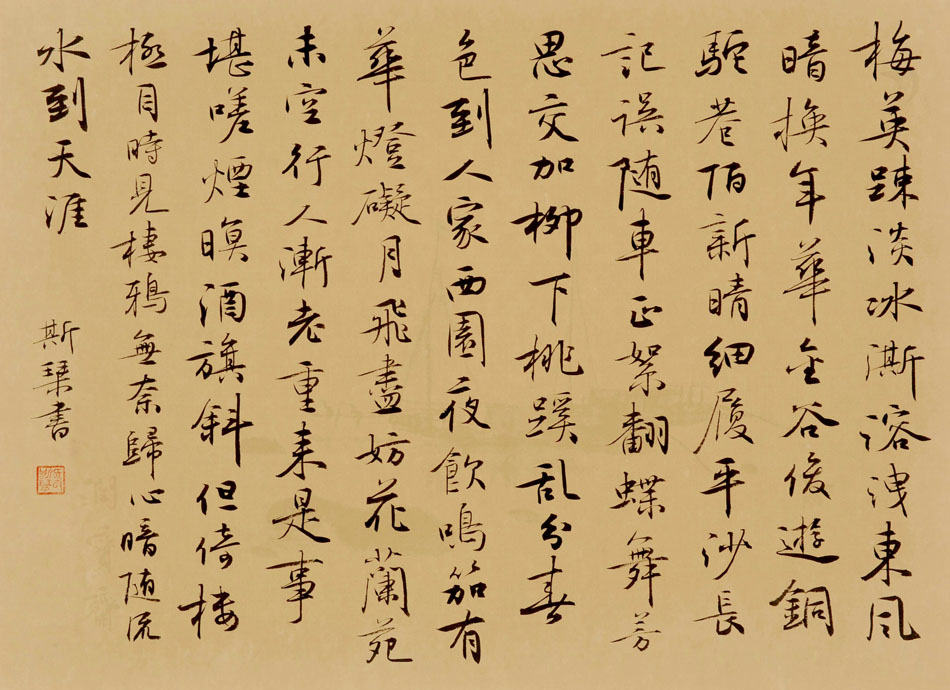 梅英踈淡冰澌溶洩東風
暗換年華金谷俊遊銅
駝巷陌新晴細履平沙長
記誤随車正絮翻蝶舞芳
思交加柳下桃蹊乱分春
色到人家西園夜飲鳴笳有
華燈礙月飛盡妨花蘭苑
未空行人漸老重来是事
堪嗟煙暝酒旗斜但倚楼
極目時見棲鴉無奈歸心暗随流
水到天涯
斯琹書